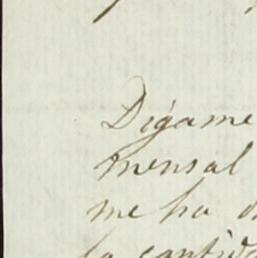 Dígame
mensal
me ha
la cantida